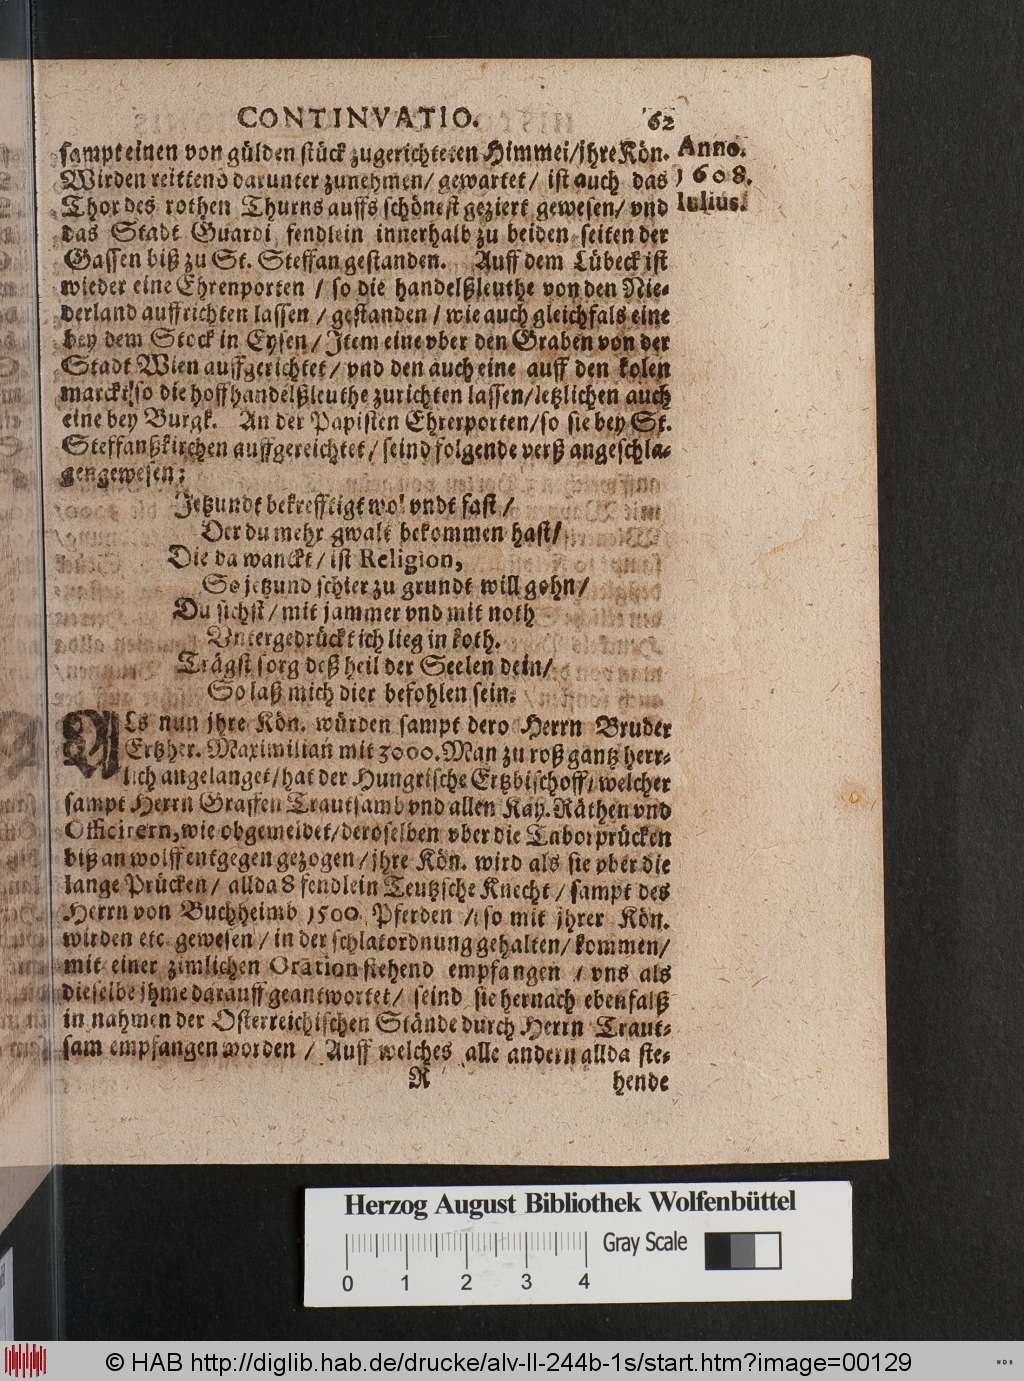 CONTINVATIO. 62
sampt einen von gülden stück zugerichteten Himmel/ jhre Kön.
Anno.
Wirden reittend darunter zunehmen/ gewartet/ ist auch das
1608.
Thor des rothen Thurns auffs schönest geziert gewesen/ vnd
Iulius.
das Stadt Guardi fendlein innerhalb zu beiden seiten der
Gassen biß zu St. Steffan gestanden. Auff dem Lübeck ist
wieder eine Ehrenporten / so die handelßleuthe von den Nie-
derland auffrichten lassen / gestanden / wie auch gleichfals eine
bey dem Stock in Eysen/ Item eine vber den Graben von der
Stadt Wien auffgerichtet/ vnd den auch eine auff den kolen
marckt/ so die hoffhandelßleuthe zurichten lassen/ letzlichen auch
eine bey Burgk. An der Papisten Ehrerporten/ so sie bey St.
Steffanßkirchen auffgereichtet/ seind folgende verß angeschla-
gen gewesen:
Jetzundt bekrefftigt wol vndt fast /
Der du mehr gwalt bekommen hast/
Die da wanckt / ist Religion,
So jetzund schier zu grundt will gehn/
Du sichst / mit jammer vnd mit noth
Untergedrückt ich lieg in koth.
Trägst sorg deß heil der Seelen dein/
So laß mich dier befohlen sein.
Als nun jhre Kön. würden sampt dero Herrn Bruder
Ertzher. Maximilian mit 3000. Man zu roß gantz herr-
lich angelanget/ hat der Hungrische Ertzbischoff/ welcher
sampt Herrn Graffen Trautsamb vnd allen Kay. Räthen vnd
Officirern, wie obgemeldet/ deroselben vber die Taborprücken
biß an wolff entgegen gezogen / jhre Kön. wird als sie vber die
lange Prücken / allda 8 fendlein Teutzsche Knecht / sampt des
Herrn von Buchheimb 1500. Pferden / so mit jhrer Kön.
wirden etc. gewesen / in der schlatordnung gehalten/ kommen/
mit einer zimlichen Oration stehend empfangen / vns als
dieselbe jhme darauff geantwortet/ seind sie hernach ebenfalß
in nahmen der Osterreichischen Stände durch Herrn Traut-
sam empfangen worden / Auff welches alle andern allda ste-
R hende
Herzog August Bibliothek Wolfenbüttel
Gray Scale
0 1 2 3 4
© HAB http://diglib.hab.de/drucke/alv-ll-244b-1s/start.htm?image=00129